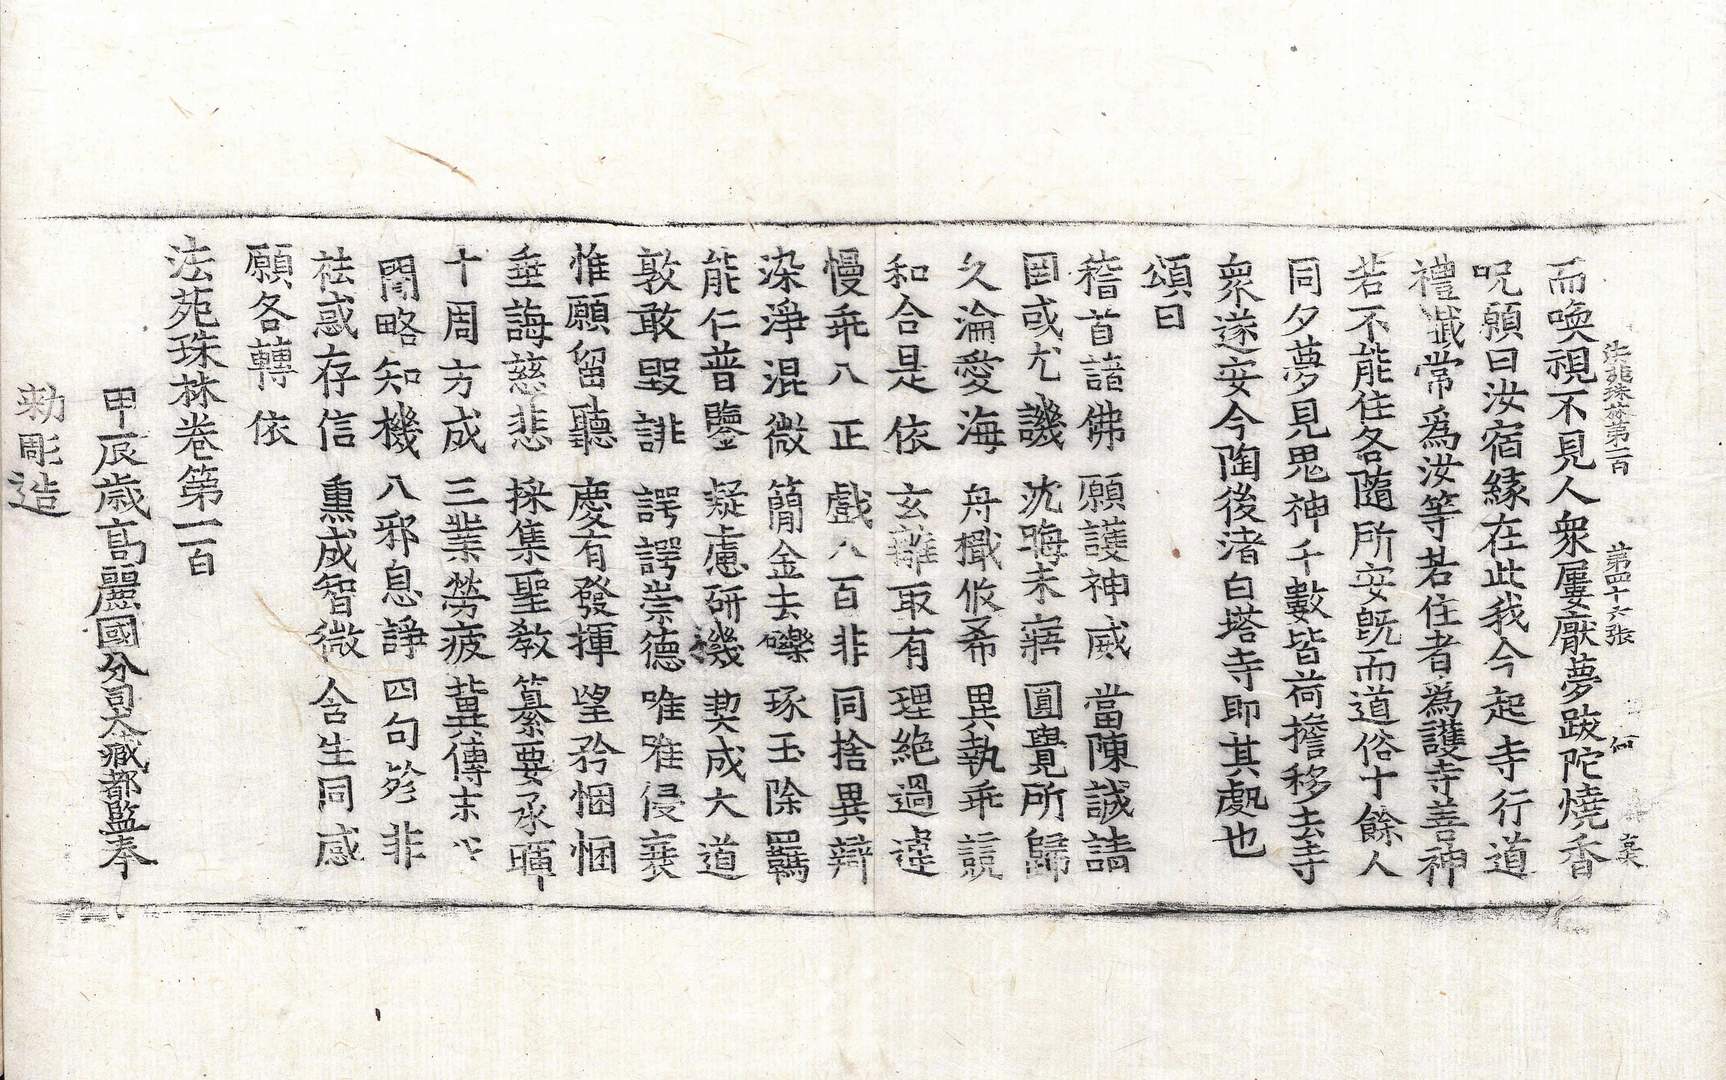 法苑珠林第一百 第四十六張
而喚視不見人衆屢厭夢跋陀燒香
呪願曰汝宿緣在此我今起寺行道
禮懺常爲汝等若住者爲護寺善神
若不能住各隨所安既而道俗十餘人
同夕夢見鬼神千數皆荷擔移去寺
衆遂安今陶後渚白塔寺即其處也
頌曰
稽首諸佛 願護神威 當陳誠請
罔或尤譏 沈晦未寤 圓覺所歸
久淪愛海 舟檝攸希 異執乖競
和合是依 玄離取有 理絕過違
慢乖八正 戲入百非 同捨異辯
染淨混微 簡金去礫 琢玉除羈
能仁普鑒 凝慮研機 契成大道
孰敢毀誹 諤諤崇德 唯唯侵衰
惟願留聽 慶有發揮 望矜悃悃
垂誨慈悲 採集聖教 纂要承暉
十周方成 三業勞疲 冀傳末
開略知機 八邪息諍 四句 非
袪惑存信 熏成智微 含生同感
願各轉依
法苑珠林卷第一百
甲辰歲高麗國分司大藏都監奉
勅彫造